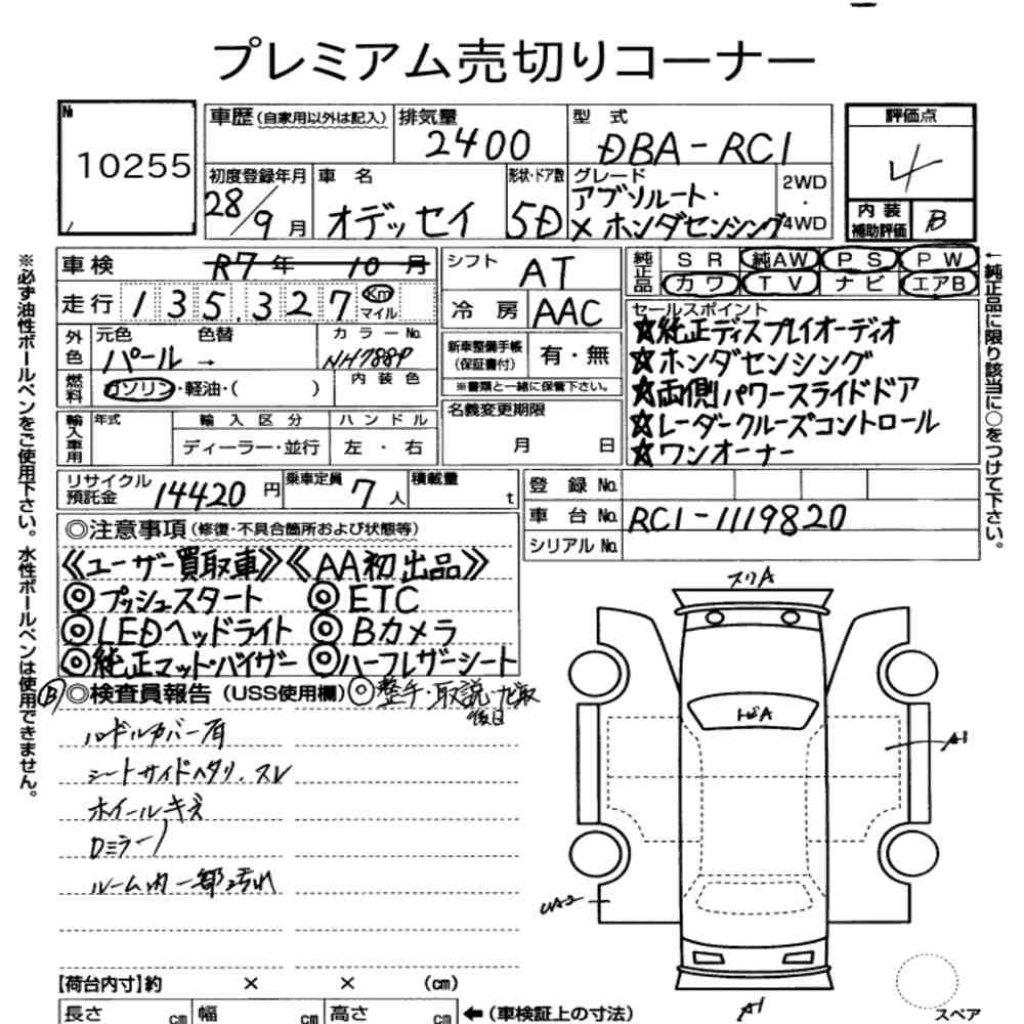 プレミアム売切りコーナー
№
10255
車歴(自家用以外は記入)
排気量
2400
型 式
DBA-RC1
評価点
4
内装補助評価
B
初度登録年月
28/9月
車 名
オデッセイ
形状・ドア数
5D
グレード
アブソルート・
×ホンダセンシング
2WD
・
4WD
車検
R7年 10月
走行
135.327
Km
マイル
シフト
AT
冷 房
AAC
純正品
SR 純AW PS PW
カワ TV ナビ エアB
外色
元色 色替
パール→
カラーNo.
NH788P
内装色
燃料
ガソリン・軽油・( )
輸入車用
年式
輸入区分
ディーラー・並行
ハンドル
左・右
新車整備手帳
(保証書付)
有・無
※書類と一緒に保管下さい。
名義変更期限
月 日
セールスポイント
☆純正ディスプレイオーディオ
☆ホンダセンシング
☆両側パワースライドドア
☆レーダークルーズコントロール
☆ワンオーナー
リサイクル
預託金
14420円
乗車定員
7人
積載量
t
登 録 No.
車 台 No.
RC1-1119820
シリアル No.
◎注意事項(修復・不具合箇所および状態等)
《ユーザー買取車》《AA初出品》
◎プッシュスタート ◎ETC
◎LEDヘッドライト ◎Bカメラ
◎純正マット・バイザー ◎ハーフレザーシート
◎検査員報告(USS使用欄)
B
◎整手・取説・ナビ取
後日
ハンドルカバー有
シートサイドヘタリ、スレ
ホイールキズ
Dミラー/
ルーム内一部汚れ
スリA
トビA
A1
UA2
A1
スペア
【荷台内寸】約 × × (cm)
長さ cm 幅 cm 高さ cm
←(車検証上の寸法)
※必ず油性ボールペンをご使用下さい。水性ボールペンは使用できません。
←純正品に限り該当に○をつけて下さい。